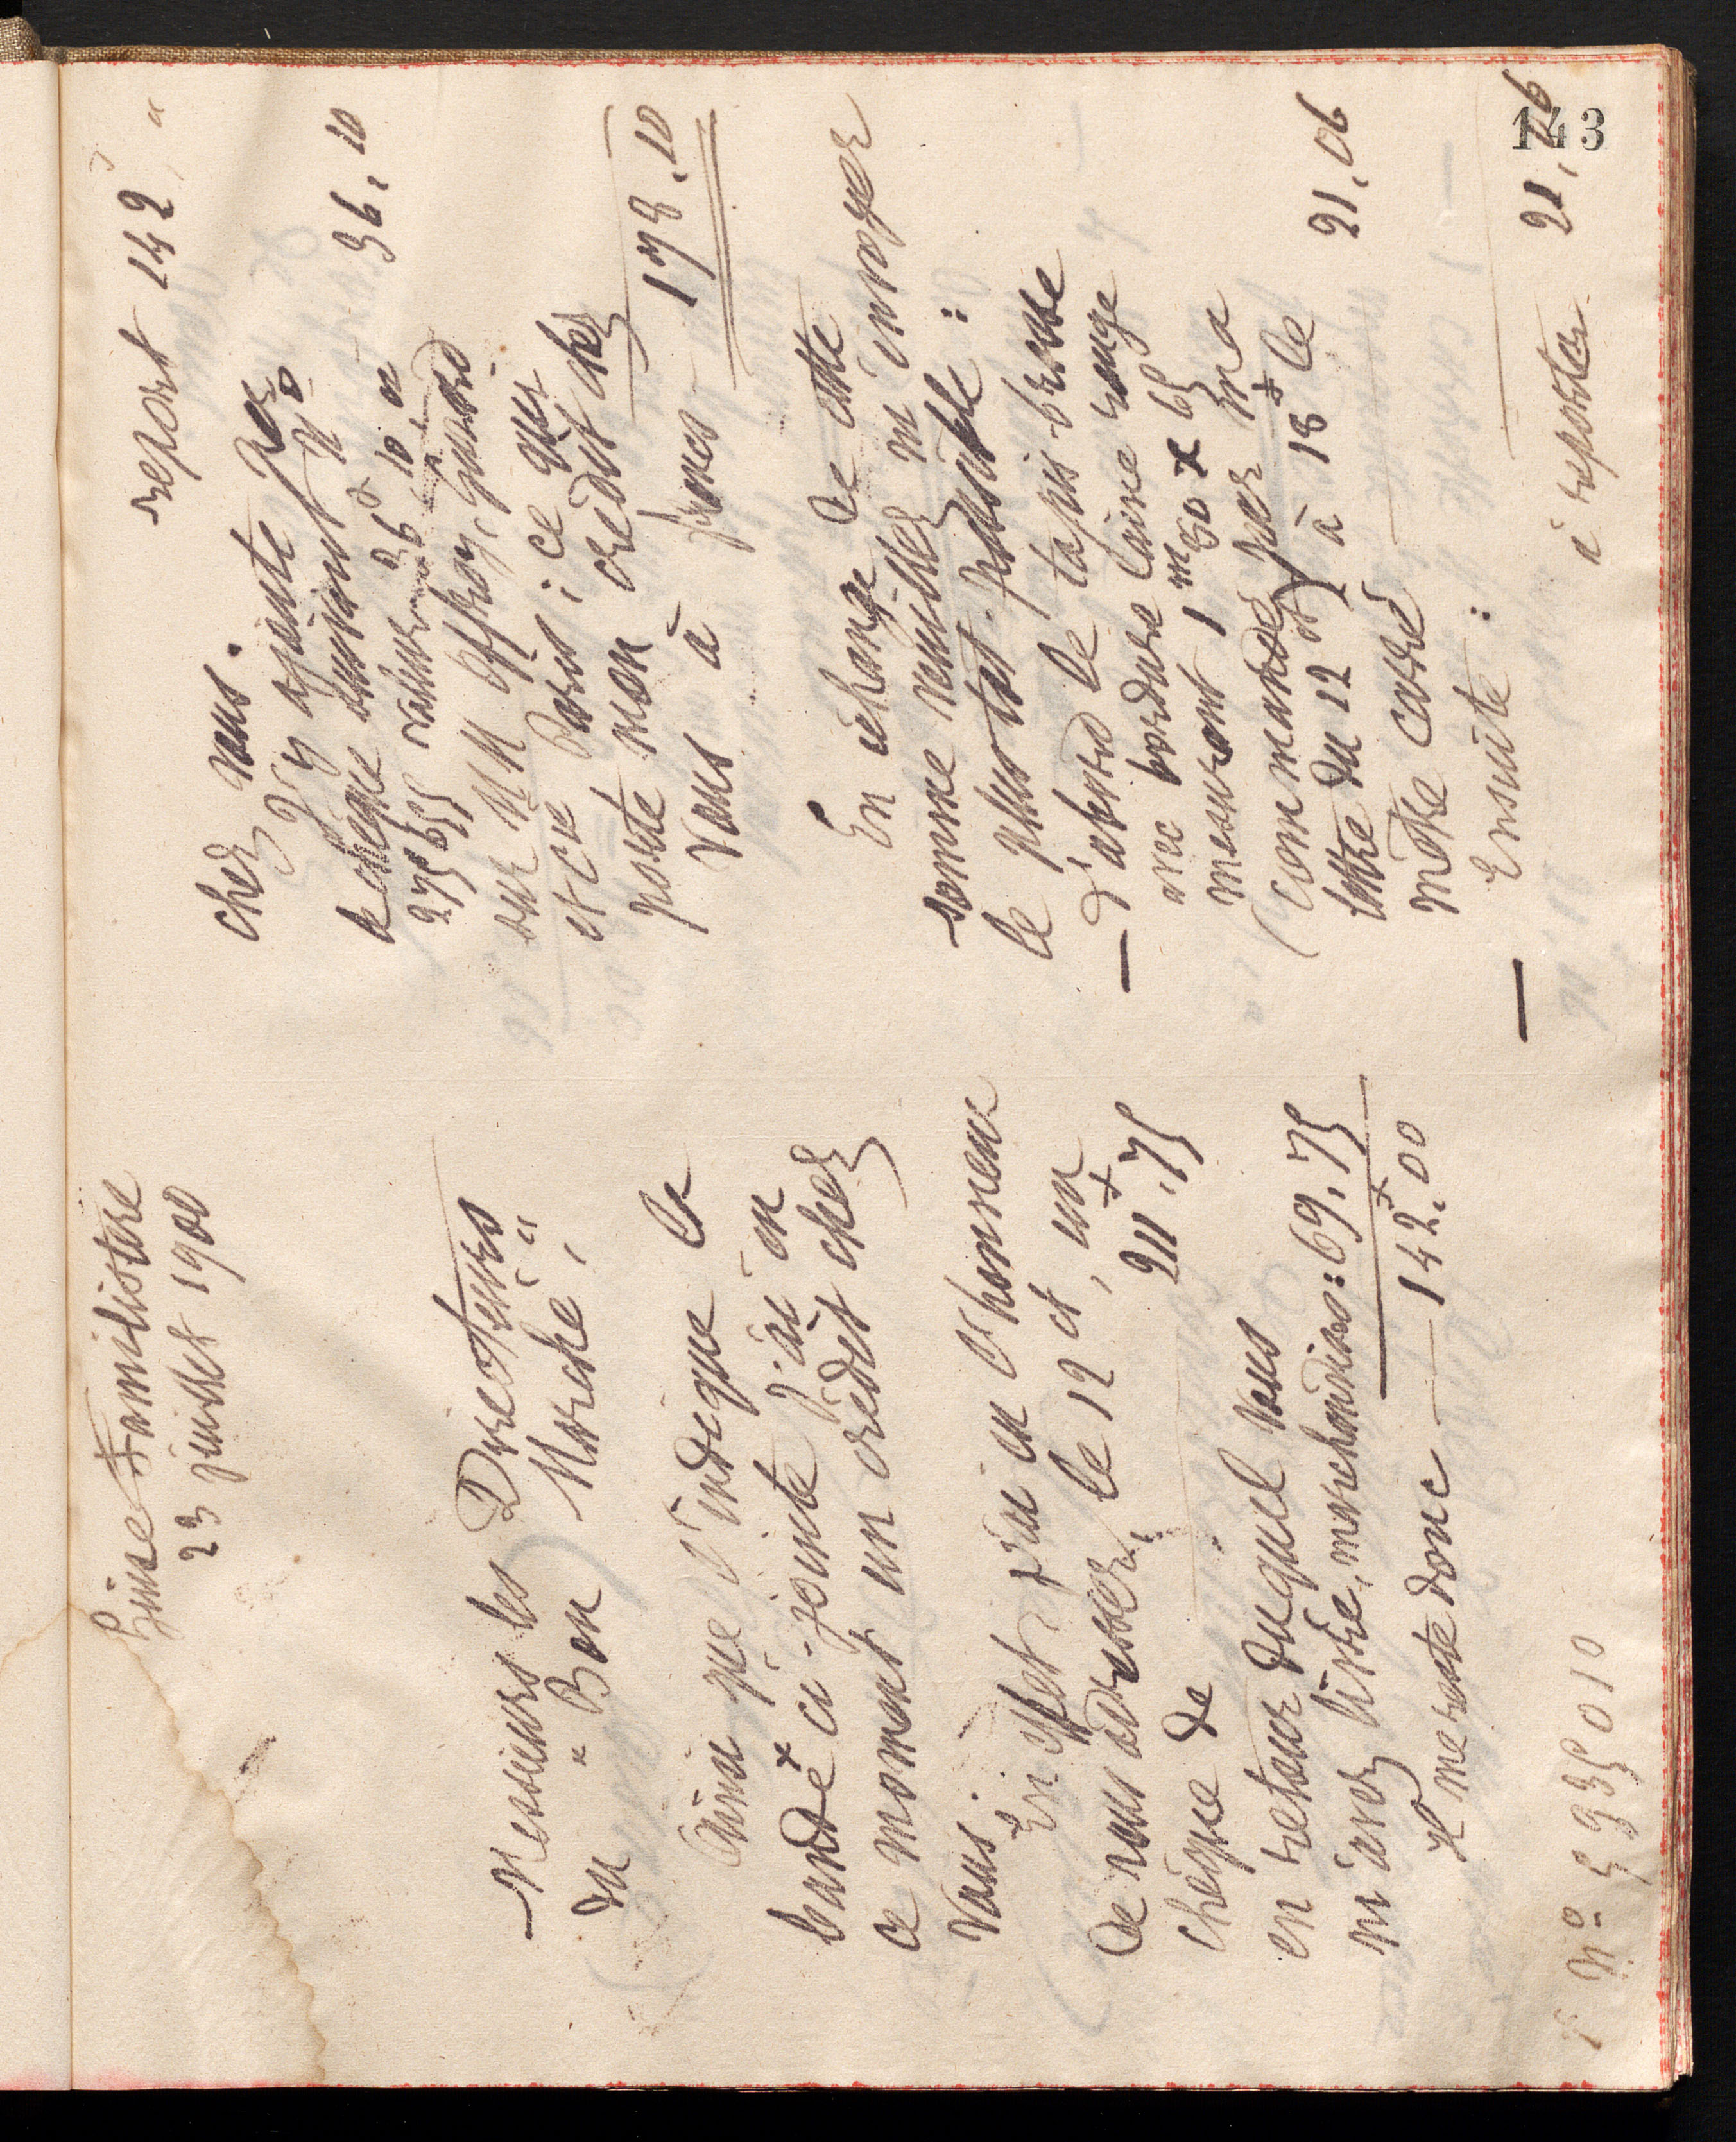 Guise Familistère
23 juillet 1900
Messieurs les Directeurs
du "Bon Marché,"
Ainsi que l'indique la
bande ci-jointe j'ai en
ce moment un crédit chez
vous.
En effet, j'ai eu l'honneur
de vous adresser, le 12 ct, un
chèque de 211.75
en retour duquel vous
m'avez livré, marchandises: 69.75
Il me reste donc — 142.00
N° 593010
report 142, "
chez vous.
J'y ajoute par
le chèque suivant N°
27565 valeur 36 10 36.10
sur MM Offroy, Guiard
et Cie Paris; ce qui
porte mon crédit chez
vous à francs 178.10
En échange de cette
somme veuillez m'envoyer
le plus tôt possible:
— D'abord le tapis brosse
avec bordure laine rouge
mesurant 1m50 x 65
(commandé par ma
lettre du 12 ct) à 18 le
mètre carré 21.06
— Ensuite:
à reporter 21,06
143